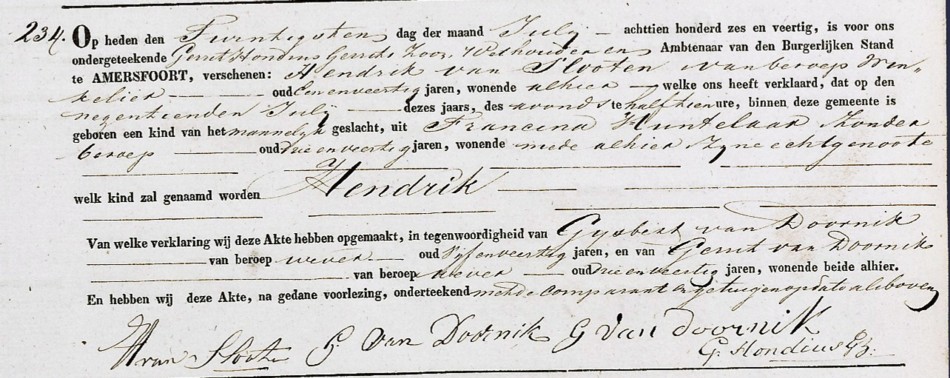 234. Op heden den Twintigsten dag der maand July achttien honderd zes en veertig, is voor ons
ondergeteekende Gerrit Hondius Gerrits Zoon, Wethouder en Ambtenaar van den Burgerlijken Stand
te AMERSFOORT, verschenen: Hendrik van Slooten van beroep Win-
kelier oud een en veertig jaren, wonende alhier welke ons heeft verklaard, dat op den
negentienden July dezes jaars, des avonds te half tien ure, binnen deze gemeente is
geboren een kind van het mannelyk geslacht, uit Francena Huntelaar Zonder
beroep oud drie en veertig jaren, wonende mede alhier Zyne echtgenoote
welk kind zal genaamd worden Hendrik
Van welke verklaring wij deze Akte hebben opgemaakt, in tegenwoordigheid van Gysbert van Doornik
van beroep wever oud vyf en veertig jaren, en van Gerrit van Doornik
van beroep wever oud drie en veertig jaren, wonende beide alhier.
En hebben wij deze Akte, na gedane voorlezing, onderteekend met de comparant en getuigen op dato als boven
H van Slooten G. Van Doornik G Van doornik
G. Hondius GZ.